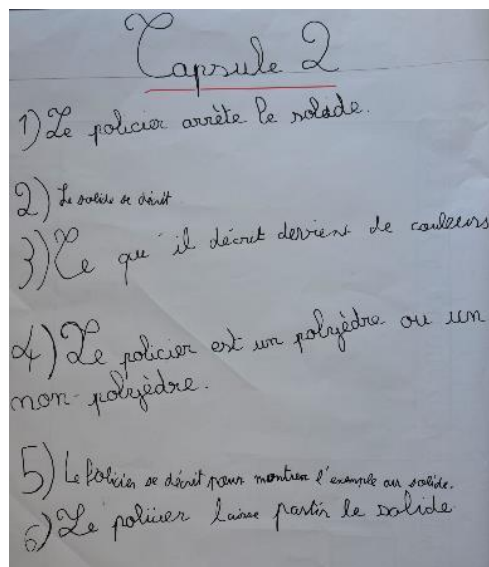 Capsule 2
1) Le policier arrête le solide.
2) Le solide se décrit
3) Ce qu'il décrit devient de couleurs
4) Le policier est un polyèdre ou un
non-polyèdre.
5) Le policier se décrit pour montrer l'exemple au solide.
6) Le policier laisse partir le solide